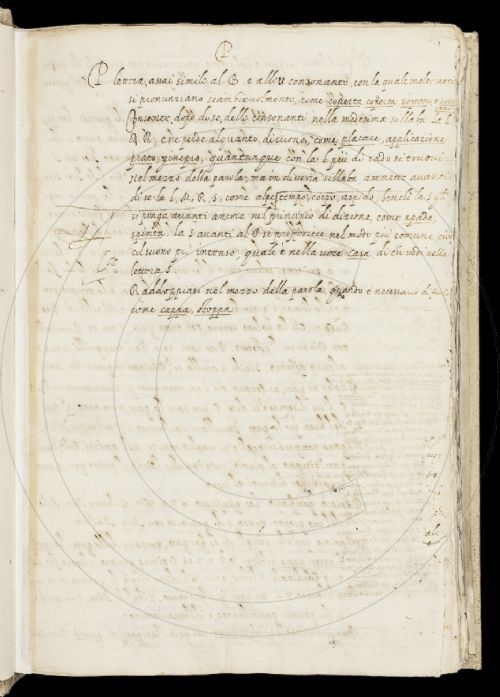 P
P lettera, assai simile al B e all'V consonante, con la quale molte voci
si pronunziano scambievolmente, come coperta coverta
Consente, dopo di se, delle consonanti nella medesima sillaba la L
R, e ne perde alquanto di suono, come placare, applicazione
prato, quantunque con la L più di rado si truovi
nel mezzo della parola, ma in diversa sillaba ammette avanti
di se la L, M, R, S, come alpestre, tempo, corpo, aspido, benchè la S gli
si ponga avanti ancora nel principio di dizione, come spada,
spinta. la S avanti al P si profferisce nel modo più comune, cioè
col suono più intenso, quale è nella voce casa, di che vedi nella
lettera S.
Raddoppiasi nel mezzo della parola, quando è necessario
come cappa, stoppa.